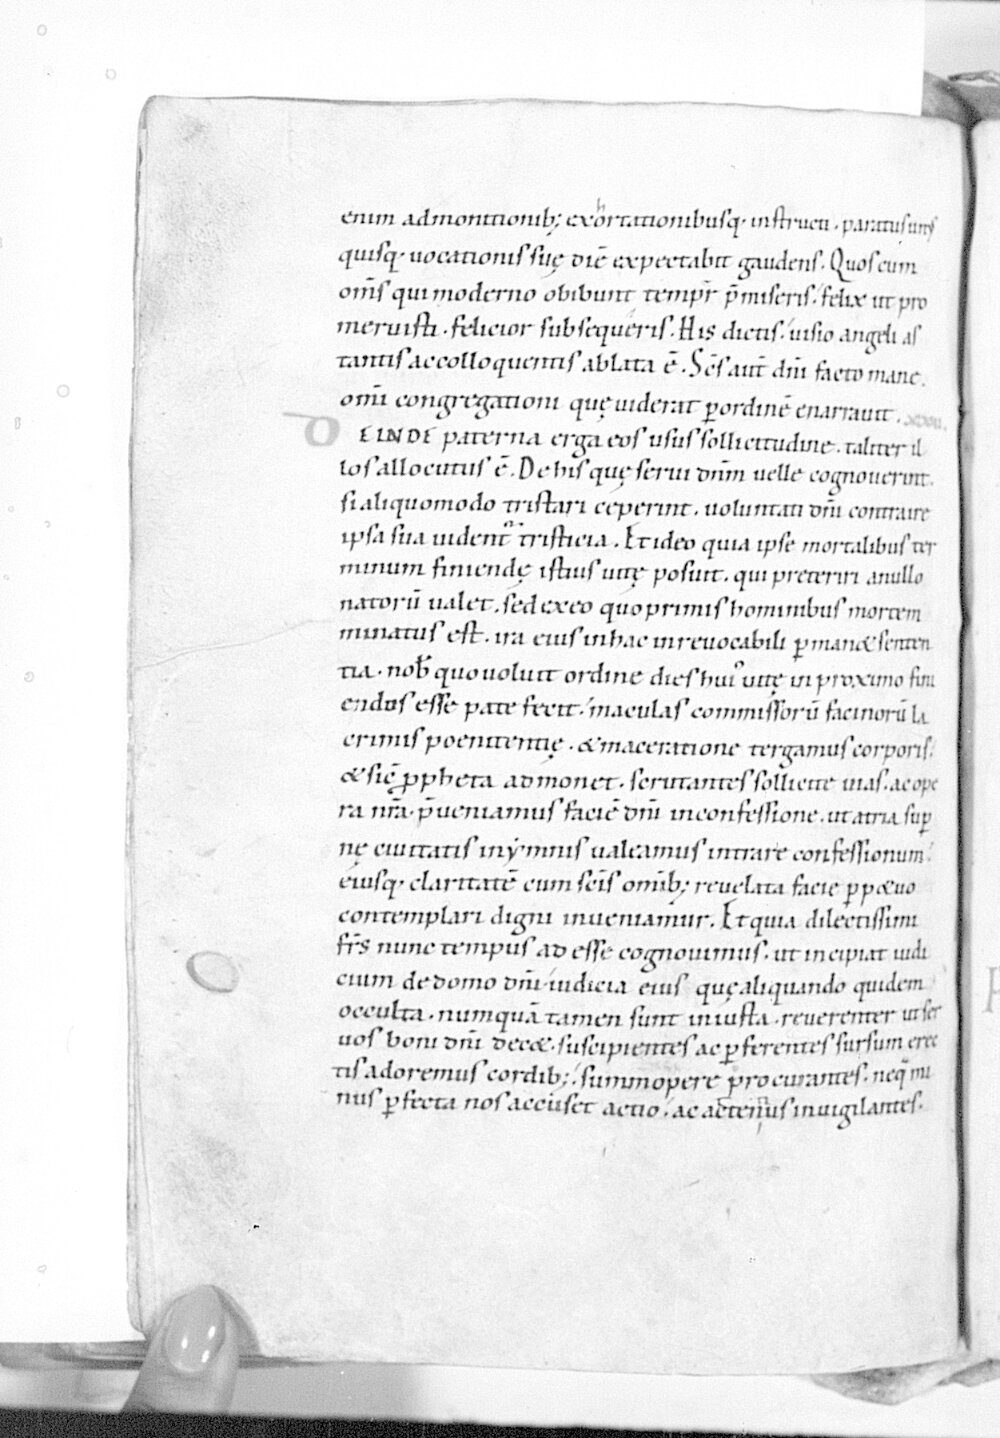 enim admonitionib; exhortationibusq· instructi· paratus un͛
quisq· uocationis suę diē expectabit gaudens. Quos cum
om̄s qui moderno obibunt temp̄r p̄miseris, felix ut pro
meruisti· felicior subsequeris. His dictis, uisio angeli as
tantis ac colloquentis ablata ē. Sc̄s aut̄ dn̄i facto mane.
om̄i congregationi quę uiderat p̱ordinē enarrauit.
DEINDE paterna erga eos usus sollicitudine· taliter il
los allocutus ē. De his quę serui dn̄m uelle cognouerint.
si aliquomodo tristari ceperint· uoluntati dn̄i contraire
ipsa sua uident᷒ tristicia. Et ideo quia ipse mortalibus ter
minum finiendę istius uitę posuit· qui preteriri a nullo
natorū ualet· sed ex eo quo primis hominibus mortem
minatus est· ira eius in hac inrevocabili p̱man& senten
tia· nob̄ quo uoluit ordine dies hui᷒ uitę in proximo fini
endos esse patefecit, maculas commissorū facinorū la
crimis poenitentię· & maceratione tergamus corporis.
& sic̄ ꝓpheta admonet· scrutantes sollicite uias· ac ope
ra nr̄a· p̄ueniamus faciē dn̄i in confessione· ut atria sup̱
nę ciuitatis in ẏmnis ualeamus intrare confessionum,
eiusq· claritatē cum sc̄is om̄ib; reuelata facie p̱p&uo
contemplari digni inueniamur. Et quia dilectissimi
fr̄s nunc tempus adesse cognouimus· ut incipiat iudi
cium de domo dn̄i, iudicia eius quę aliquando quidem
occulta· numquā tamen sunt iniusta· reuerenter ut ser
uos boni dn̄i dec&· suscipientes ac p̱ferentes sursum erec
tis adoremus cordib;, summopere procurantes· neq̄ mi
nus p̱fecta nos accuset actio, ac actenus inuigilantes.